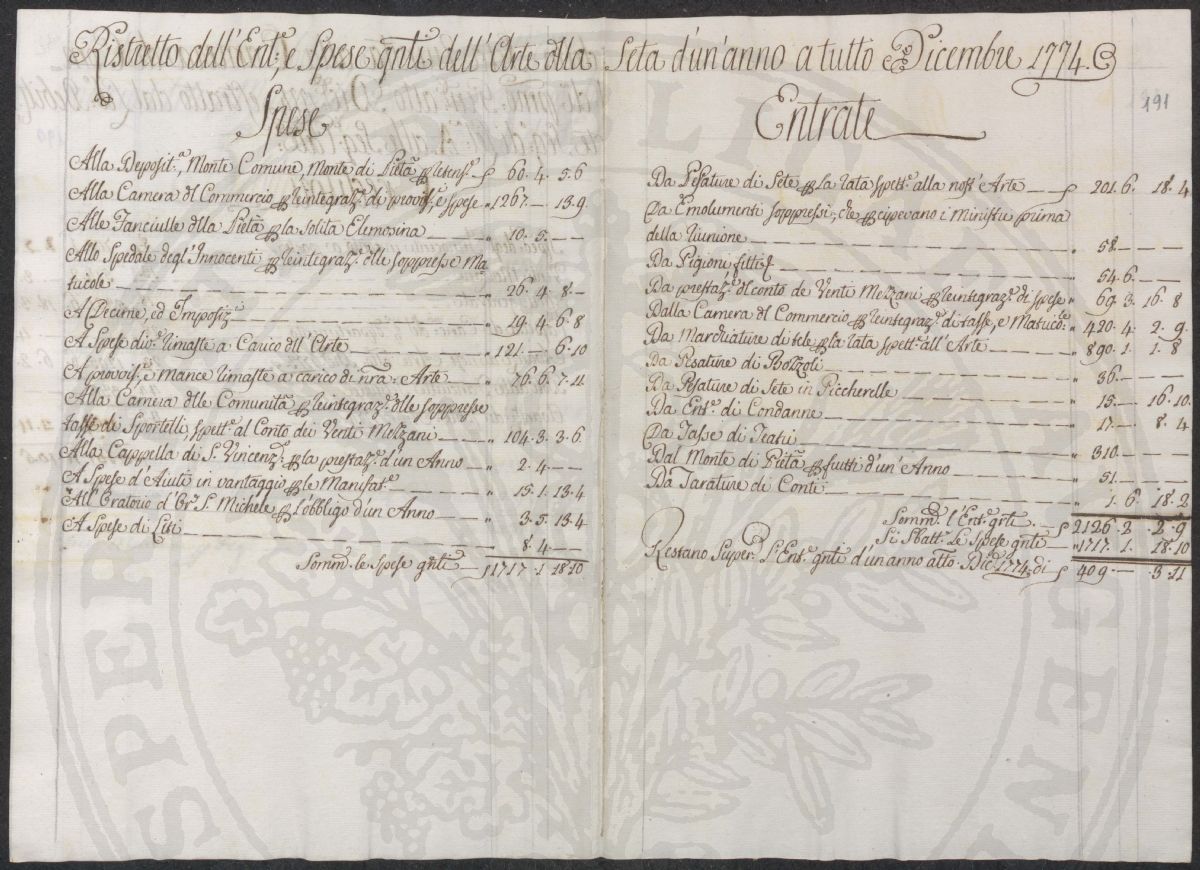 Ristretto dell'Ent.e, e Spese gnti dell'Arte dlla Seta d'un'anno a tutto Dicembre 1774.
191
Spese
Alla Deposit.a, Monte Comune, Monte di Pietà 60. 4. 5. 6
Alla Camera dl Commercio p reintegraz.e di provis.e, e spese " 1267. — 13. 9
Alle Fanciulle dlla Pietà p la solita Elemosina " 10. 5. —
Allo Spedale degl'Innocenti p reintegraz.e dlle soppresse Ma-
tricole " 26. 4. 8. —
A Decime, ed Imposiz.i " 19. 4. 6. 8
A Spese div.e rimaste a Carico dll'Arte " 121. — 6. 10
A provis.i, e Mance rimaste a carico di nra: Arte " 76. 6. 7. 11
Alla Camera dlle Comunità p reintegraz.e dlle soppresse
tasse di Sportelli spett.i al Conto dei Venti Mezzani " 104. 3. 3. 6
Alla Cappella di S. Vincenz.o p la prestaz.e d'un Anno " 2. 4. —
A Spese d'Aiuti in vantaggio p le Manifat.e " 15. 1. 13. 4
All'Oratorio d'Or S. Michele p l'obbligo d'un Anno " 3. 5. 13. 4
A Spese di Liti 8. 4. —
Somm.o le Spese gnti 1717. 1. 18. 10
Entrate
Da Pesature di Sete p la rata spett.e alla nost.a Arte 201. 6. 18. 4
Da Emolumenti soppressi, che pcipevano i Ministri prima
della riunione " 58. —
Da Pigioni, fitti " 54. 6. —
Da prestaz.e dl conto de Venti Mezzani p reintegraz.e di spese " 69. 3. 16. 8
Dalla Camera dl Commercio p reintegraz.e di tasse, e Matricole " 420. 4. 2. 9
Da Marchiature di tele p la rata spett.e all'Arte " 890. 1. 1. 8
Da Pesature di Bozzoli " 36. —
Da Pesature di Sete in Piccherelle " 15. — 16. 10
Da Ent.e di Condanne " 17. — 8. 4
Da Tasse di Teatri " 310. —
Dal Monte di Pietà p frutti d'un'Anno " 51. —
Da Tarature di Conti 1. 6. 18. 2
Somm.o l'Ent.e gnti 2126. 2. 2. 9
Si Sbatt.o le Spese gnti " 1717. 1. 18. 10
Restano Super.i l'Ent.e gnti d'un'anno a tto Dic.e 1774. di 409. — 3. 11
SPER